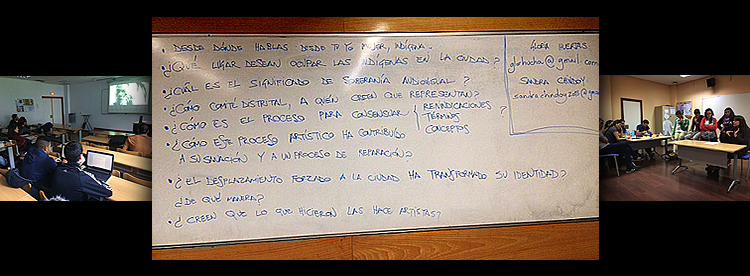 • DESDE DÓNDE HABLAS DESDE TU YO MUJER, INDÍGENA
• ¿QUÉ LUGAR DESEAN OCUPAR LAS INDÍGENAS EN LA CIUDAD?
• ¿CUÁL ES EL SIGNIFICADO DE SOBERANÍA AUDIOVISUAL?
• ¿CÓMO COMITÉ DISTRITAL, A QUIÉN CREEN QUE REPRESENTAN?
• ¿CÓMO ES EL PROCESO PARA CONSENSUAR { REIVINDICACIONES
TÉRMINOS ?
CONCEPTOS
• ¿CÓMO ESTE PROCESO ARTÍSTICO HA CONTRIBUIDO
A SU SANACIÓN Y A UN PROCESO DE REPARACIÓN?
• ¿EL DESPLAZAMIENTO FORZADO A LA CIUDAD HA TRANSFORMADO SU IDENTIDAD?
¿DE QUÉ MANERA?
• ¿CREEN QUE LO QUE HICIERON LAS HACE ARTISTAS?
HUERTAS
@gmail.com
SANDRA CHINDOY